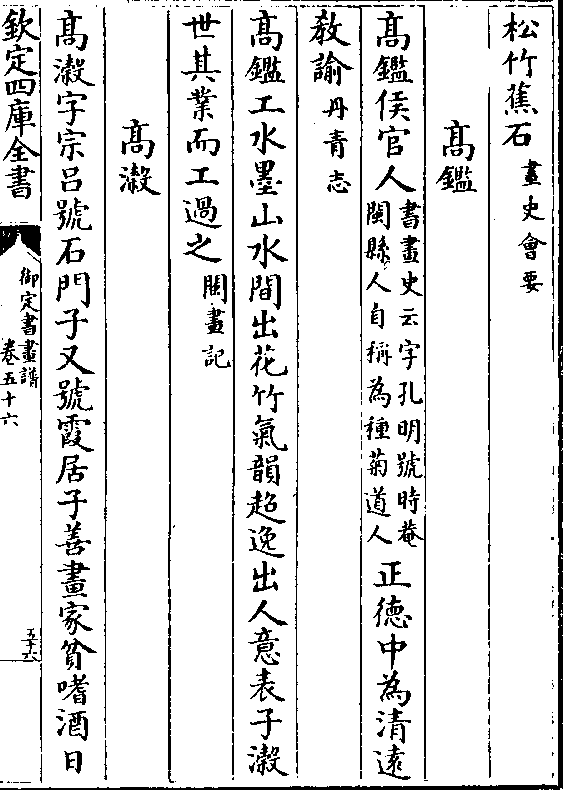 松竹蕉石畫史會要
髙鑑
髙鑑侯官人書畫史云字孔明號時菴閩縣人自稱為種菊道人正徳中為清遠
敎諭丹青志
髙鑑工水墨山水間出花竹氣韻超逸出人意表子瀫
世其業而工過之閩畫記
髙瀫
髙瀫字宗吕號石門子又號霞居子善畫家貧嗜酒日
欽定四庫全書
御定書畫譜
卷五十六
五十六